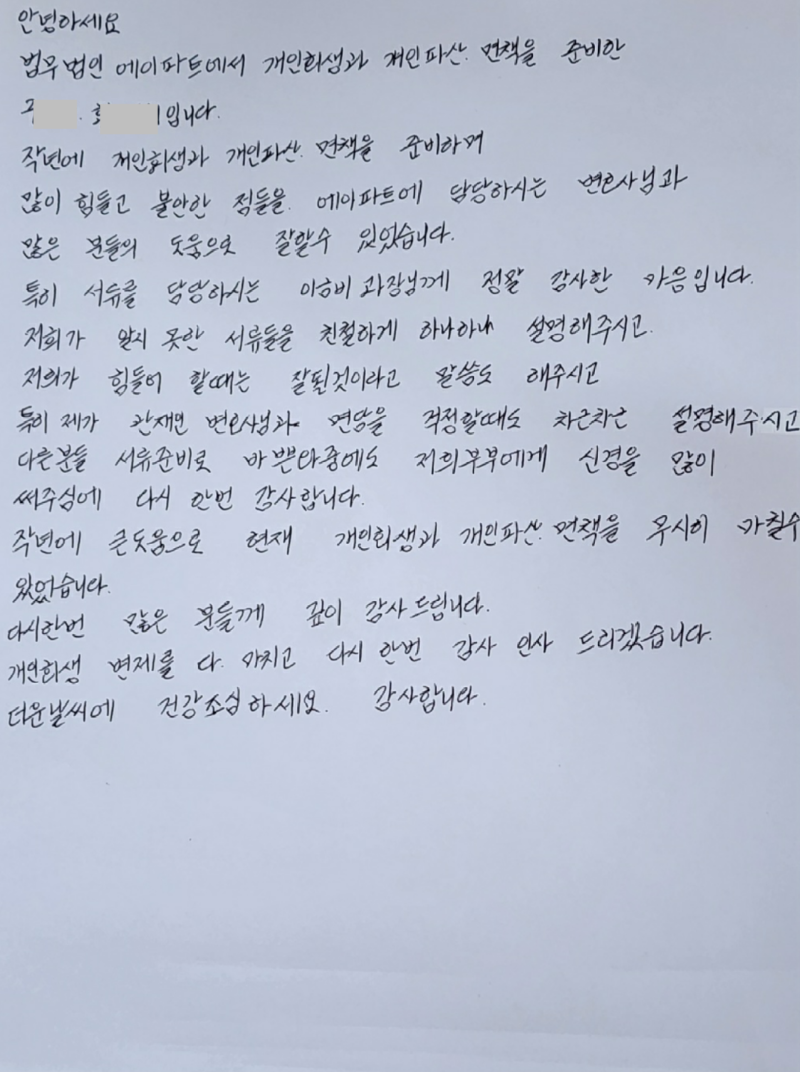 안녕하세요
법무법인 에이파트에서 개인회생과 개인파산.면책을 준비한
입니다.
작년에 개인회생과 개인파산.면책을 준비하며
많이 힘들고 불안한 점들을. 에이파트에 담당하시는 변호사님과
많은 분들의 도움으로 잘할수 있었습니다.
특히 서류를 담당하시는 과장님께 정말 감사한 마음입니다.
저희가 알지 못한 서류들을 친절하게 하나하나 설명해주시고.
저희가 힘들어 할때는 잘될것이라고 말씀도 해주시고
특히 제가 관재인 변호사님과 면담을 걱정할때도 차근차근 설명해주시고
다른분들 서류준비로 바쁜와중에도 저희부부에게 신경을 많이
써주심에 다시 한번 감사합니다.
작년에 큰도움으로 현재 개인회생과 개인파산.면책을 무사히 마칠수
있었습니다.
다시한번 많은 분들께 깊이 감사드립니다.
개인회생 변제를 다. 마치고 다시 한번 감사 인사 드리겠습니다.
더운날씨에 건강조심하세요. 감사합니다.